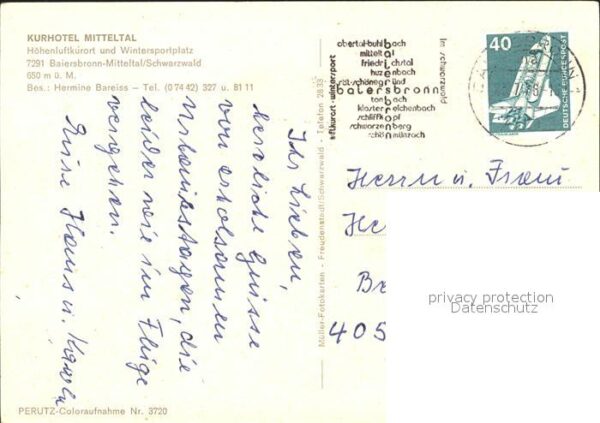 KURHOTEL MITTELTAL
Höhenluftkurort und Wintersportplatz
7291 Baiersbronn-Mitteltal/Schwarzwald
650 m ü. M.
Bes.: Hermine Bareiss – Tel. (0 74 42) 327 u. 81 11
Ihr Lieben,
herzliche Grüsse
von erholsamen
Urlaubstagen, die
leider wie im Fluge
vergehen.
Eure Hans u.
PERUTZ-Coloraufnahme Nr. 3720
Müller-Fotokarten - Freudenstadt/Schwarzwald - Telefon 2833
obertal-buhlbach
mitteltal
friedrichstal
huzenbach
röt-schönegründ
baiersbronn
tonbach
klosterreichenbach
schliffkopf
schwarzenberg
schönmünzach
luftkurort·wintersport
im schwarzwald
40
DEUTSCHE BUNDESPOST
Herrn u. Frau
He
Br
405
privacy protection
Datenschutz